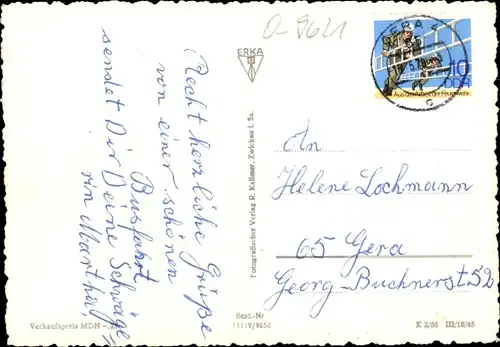 O-9621
ERKA
GERA
10
DDR
Aus der Arbeit der Feuerwehr
Recht herzliche Grüße
von einer schönen
Busfahrt
sendet Dir Deine Schwäge=
rin Martha,
Fotografischer Verlag R. Kallmer, Zwickau i. Sa.
An
Helene Lochmann
65 Gera
Georg-Buchnerst 52
Verkaufspreis MDN
Best.-Nr
11119/9650
K 2/66 III/18/45